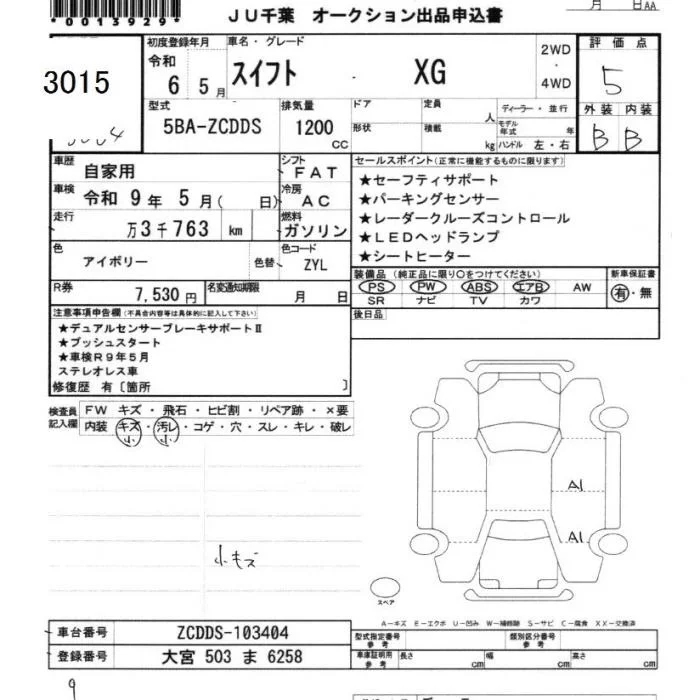 *0013929*
JU千葉 オークション出品申込書
月 日AA
3015
初度登録年月
令和
6 5月
車名・グレード
スイフト XG
2WD
・
4WD
評価点
5
型式
5BA-ZCDDS
排気量
1200
CC
ドア
定員
人
形状
積載
kg
ディーラー・並行
モデル年式 年
ハンドル 左・右
外装 内装
B B
車歴
自家用
シフト
FAT
車検
令和 9年 5月( 日)
冷房
AC
走行
万3千763 km
燃料
ガソリン
色
アイボリー
色替
色コード
ZYL
R券
7,530円
名変通知期限
月 日
セールスポイント(正常に機能するものに限ります)
★セーフティサポート
★パーキングセンサー
★レーダークルーズコントロール
★LEDヘッドランプ
★シートヒーター
装備品 (純正品に限り○をつけてください)
PS PW ABS エアB AW
SR ナビ TV カワ
新車保証書
有・無
後日品
注意事項申告欄(不具合内容等は具体的に記入して下さい)
★デュアルセンサーブレーキサポートⅡ
★プッシュスタート
★車検R9年5月
ステレオレス車
修復歴 有〔箇所 〕
検査員
記入欄
FW キズ・飛石・ヒビ割・リペア跡・×要
内装 キズ・汚レ・コゲ・穴・スレ・キレ・破レ
小 小
小キズ
A1
A1
スペア
A－キズ E－エクボ U－凹み W－補修跡 S－サビ C－腐食 XX－交換済
車台番号
ZCDDS-103404
登録番号
大宮 503 ま 6258
型式指定番号
参考
類別区分番号
参考
車庫証明用
参考
長さ cm
幅 cm
高さ cm